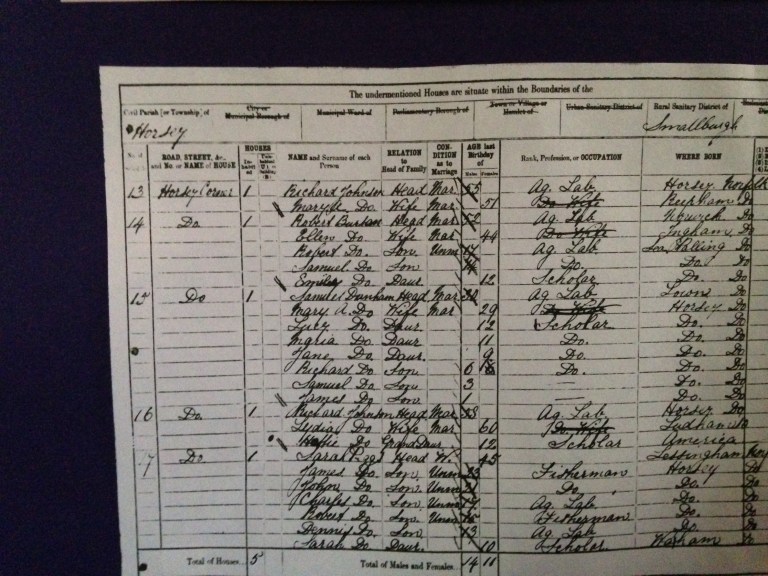 The undermentioned Houses are situate within the Boundaries of the
Civil Parish [or Township] of City or Municipal Borough of Municipal Ward of Parliamentary Borough of Town or Village or Hamlet of Urban Sanitary District of Rural Sanitary District of
Horsey Smallburgh
ROAD, STREET, &c., and No. or NAME of HOUSE HOUSES NAME and Surname of each Person RELATION to Head of Family CONDITION as to Marriage AGE last Birthday of Males Females Rank, Profession, or OCCUPATION WHERE BORN
13 Horsey Corner 1 Richard Johnson Head Mar 55 Ag. Lab Horsey Norfolk
Do. Wife Mar 51 Do Wife Reepham Do
14 Do. 1 Robert Head Mar 52 Ag. Lab Norwich Do
Ellen Do. Wife Mar 44 Do Wife Ingham Do
Robert Do. Son Unm 17 Ag. Lab Sea Palling Do
Samuel Do. Son Do. Do. Do
Emily Do Daur 12 Scholar Do. Do
15 Do 1 Samuel Durham Head Mar 30 Ag. Lab Do
Mary A. Do Wife Mar 29 Do Wife Horsey Do
Lucy Do Daur 12 Scholar Do. Do
Maria Do Daur 11 Do. Do. Do
Jane Do Daur. 9 Do. Do. Do
Richard Do. Son 6 Do. Do. Do
Samuel Do. Son 3 Do. Do
James Do Son 1 Do. Do
16 Do 1 Richard Johnson Head Mar 58 Ag. Lab Horsey Do
Lydia Do Wife Mar 60 Do. Wife Ludham Do
Do GrandDaur. 12 Scholar America
17 Do. 1 Sarah Head W. 45 Lessingham
James Do. Son Unm 23 Fisherman Horsey Do
John Do. Son Unm 21 Do. Do. Do
Charles Do. Son Unm 17 Ag. Lab Do. Do
Robert Do. Son Unm 15 Fisherman Do. Do
Dennis Do. Son 13 Ag. Lab Do. Do
Sarah Do. Daur. 10 Scholar. Waxham Do
Total of Houses... 5 Total of Males and Females... 14 11